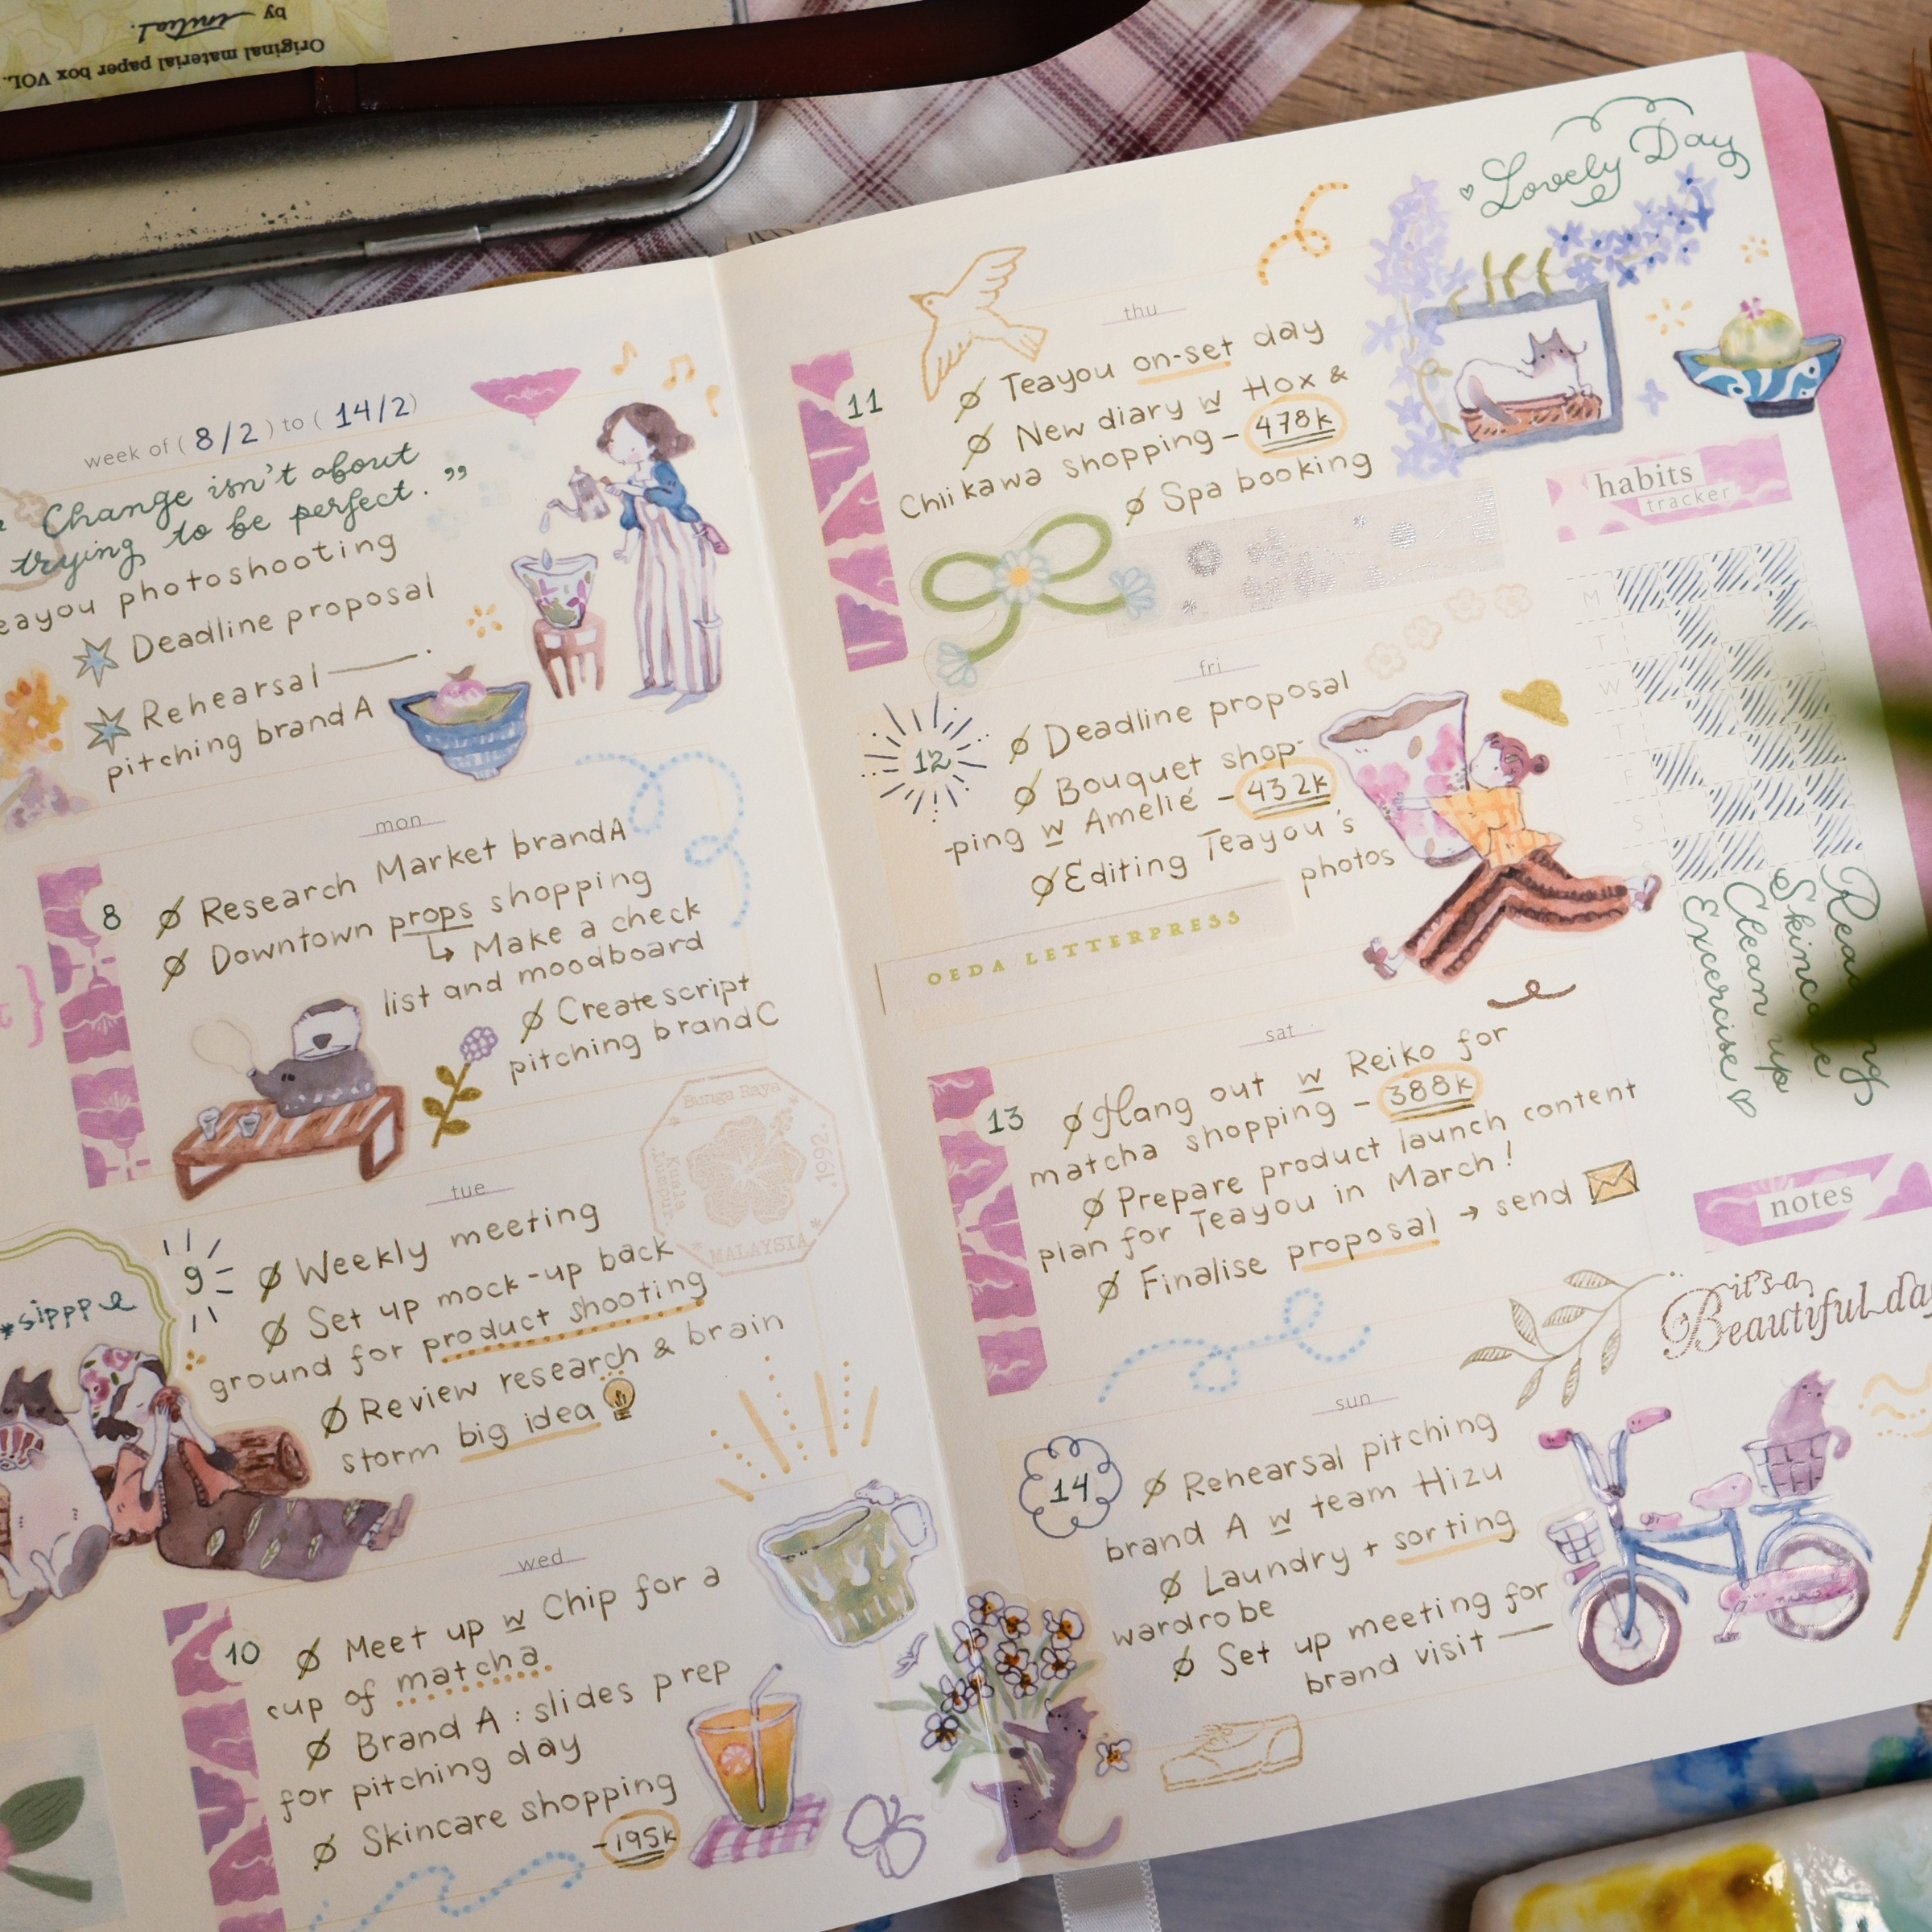 Original material paper box VOL.
by
week of ( 8/2 ) to ( 14/2 )
Change isn't about
trying to be perfect. ”
photoshooting
Deadline proposal
Rehearsal
pitching brand A
mon
8
Research Market brand A
Downtown props shopping
↳ Make a check
list and moodboard
Create script
pitching brand C
Bunga Raya
Kuala Lumpur.
1992.
MALAYSIA
tue
9
Weekly meeting
Set up mock-up back
ground for product shooting
Review research & brain
storm big idea
*sipppe
wed
10
Meet up w Chip for a
cup of matcha.
Brand A : slides prep
for pitching day
Skincare shopping
-195k
Lovely Day
thu
11
Teayou on-set day
New diary w Hox &
Chiikawa shopping - 478k
Spa booking
fri
12
Deadline proposal
Bouquet shop-
-ping w Amelié - 432k
Editing Teayou's
photos
OEDA LETTERPRESS
sat
13
Hang out w Reiko for
matcha shopping - 388k
Prepare product launch content
plan for Teayou in March!
Finalise proposal → send
sun
14
Rehearsal pitching
brand A w team Hizu
Laundry + sorting
wardrobe
Set up meeting for
brand visit —
habits
tracker
M
T
W
T
F
S
Excercise
Clean up
notes
it's a
Beautiful day